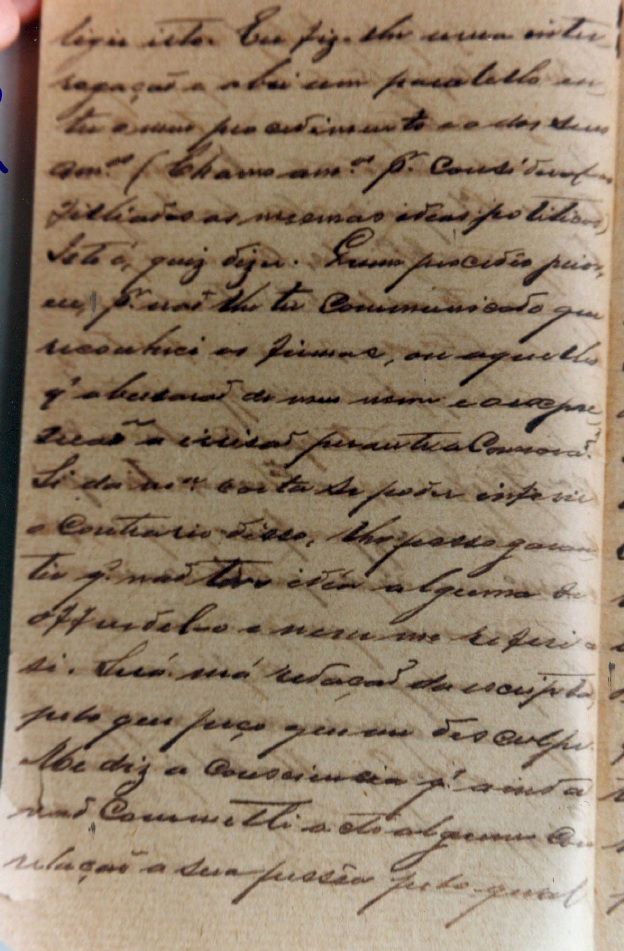 ligir isto. Eu fiz-lhe uma inter
rogação e abri um paralello en
tre o meu procedimento e o dos seus
am.os (Chamo am.os p.r consideral-os
filliados as mesmas idéas politicas)
Isto é, quiz dizer. Quem procedeo peior,
eu, p.r não lhe ter communicado que
reconheci as firmas, ou aquelles
q' abusarão do meu nome e
a commissão perante a Commissão?
Si da m.a carta se poder inferir
o contrario disso, lhe posso garan
tir q' não tive idéa alguma de
offendel-o e nem me referi a
si. Será má redação da escripta,
pelo que peço que me desculpe.
Me diz a consciencia q' ainda
não Commetti acto algum em
relação a sua pessôa pelo qual